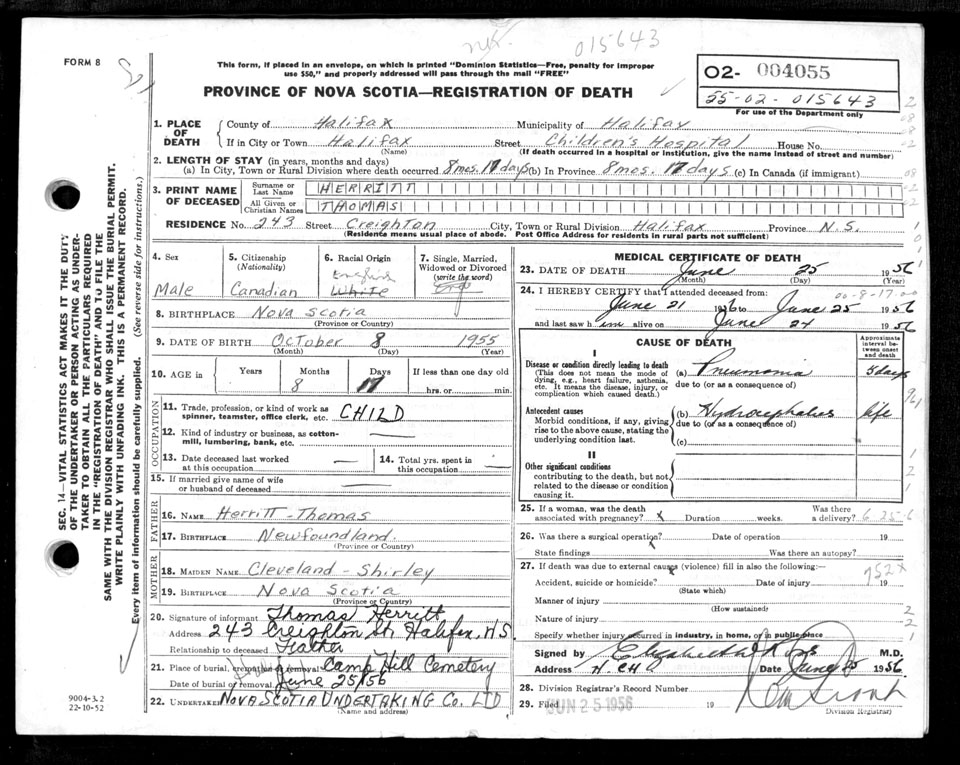 015643
FORM 8
This form, if placed in an envelope, on which is printed "Dominion Statistics—Free, penalty for improper
use $50," and properly addressed will pass through the mail "FREE"
O2- 004055
55-02-015643
For use of the Department only
PROVINCE OF NOVA SCOTIA—REGISTRATION OF DEATH
1. PLACE OF DEATH County of Halifax Municipality of Halifax
If in City or Town Halifax Street Children's Hospital House No.
(Name) (If death occurred in a hospital or institution, give the name instead of street and number)
2. LENGTH OF STAY (in years, months and days)
(a) In City, Town or Rural Division where death occurred 8 mos. 17 days (b) In Province 8 mos. 17 days (c) In Canada (if immigrant)
3. PRINT NAME OF DECEASED Surname or Last Name HERRITT
All Given or Christian Names THOMAS
RESIDENCE No. 243 Street Creighton City, Town or Rural Division Halifax Province N.S.
(Residence means usual place of abode. Post Office Address for residents in rural parts not sufficient)
4. Sex Male
5. Citizenship (Nationality) Canadian
6. Racial Origin English White
7. Single, Married, Widowed or Divorced (write the word)
8. BIRTHPLACE Nova Scotia
(Province or Country)
9. DATE OF BIRTH October 8 1955
(Month) (Day) (Year)
10. AGE in Years Months Days If less than one day old
8 17 hrs. or min.
OCCUPATION
11. Trade, profession, or kind of work as spinner, teamster, office clerk, etc. CHILD
12. Kind of industry or business, as cotton-mill, lumbering, bank, etc. —
13. Date deceased last worked at this occupation —
14. Total yrs. spent in this occupation —
15. If married give name of wife or husband of deceased —
FATHER
16. NAME Herritt - Thomas
17. BIRTHPLACE Newfoundland.
(Province or Country)
MOTHER
18. MAIDEN NAME Cleveland - Shirley
19. BIRTHPLACE Nova Scotia
(Province or Country)
20. Signature of informant Thomas Herritt
Address 243 Creighton St, Halifax, N.S.
Relationship to deceased Father
21. Place of burial, cremation or removal Camp Hill Cemetery
Date of burial or removal June 25/56
22. UNDERTAKER NOVA SCOTIA UNDERTAKING CO. LTD
(Name and address)
MEDICAL CERTIFICATE OF DEATH
23. DATE OF DEATH June 25 1956
(Month) (Day) (Year)
24. I HEREBY CERTIFY that I attended deceased from:
00-8-17-00
June 21 1956 to June 25 1956
and last saw him alive on June 24 1956
CAUSE OF DEATH
Approximate interval between onset and death
I
Disease or condition directly leading to death (a) Pneumonia 5 days
(This does not mean the mode of dying, e.g., heart failure, asthenia, etc. It means the disease, injury, or complication which caused death.)
due to (or as a consequence of)
Antecedent causes (b) Hydrocephalus life
Morbid conditions, if any, giving rise to the above cause, stating the underlying condition last.
due to (or as a consequence of)
(c)
II
Other significant conditions
contributing to the death, but not related to the disease or condition causing it.
25. If a woman, was the death associated with pregnancy? Duration weeks. Was there a delivery?
26. Was there a surgical operation? Date of operation 19
State findings Was there an autopsy?
27. If death was due to external causes (violence) fill in also the following:—
Accident, suicide or homicide? Date of injury 19
(State which)
Manner of injury
(How sustained)
Nature of injury
Specify whether injury occurred in industry, in home, or in public place
Signed by M.D.
Address N.C.H. Date June 25 1956
28. Division Registrar's Record Number
29. Filed JUN 25 1956 19
Division Registrar)
SEC. 14—VITAL STATISTICS ACT MAKES IT THE DUTY
OF THE UNDERTAKER OR PERSON ACTING AS UNDER-
TAKER TO OBTAIN ALL THE PARTICULARS REQUIRED
IN THE "REGISTRATION OF DEATH" AND TO FILE THE
SAME WITH THE DIVISION REGISTRAR WHO SHALL ISSUE THE BURIAL PERMIT.
WRITE PLAINLY WITH UNFADING INK. THIS IS A PERMANENT RECORD.
Every item of information should be carefully supplied. (See reverse side for instructions.)
9004-3.2
22-10-52